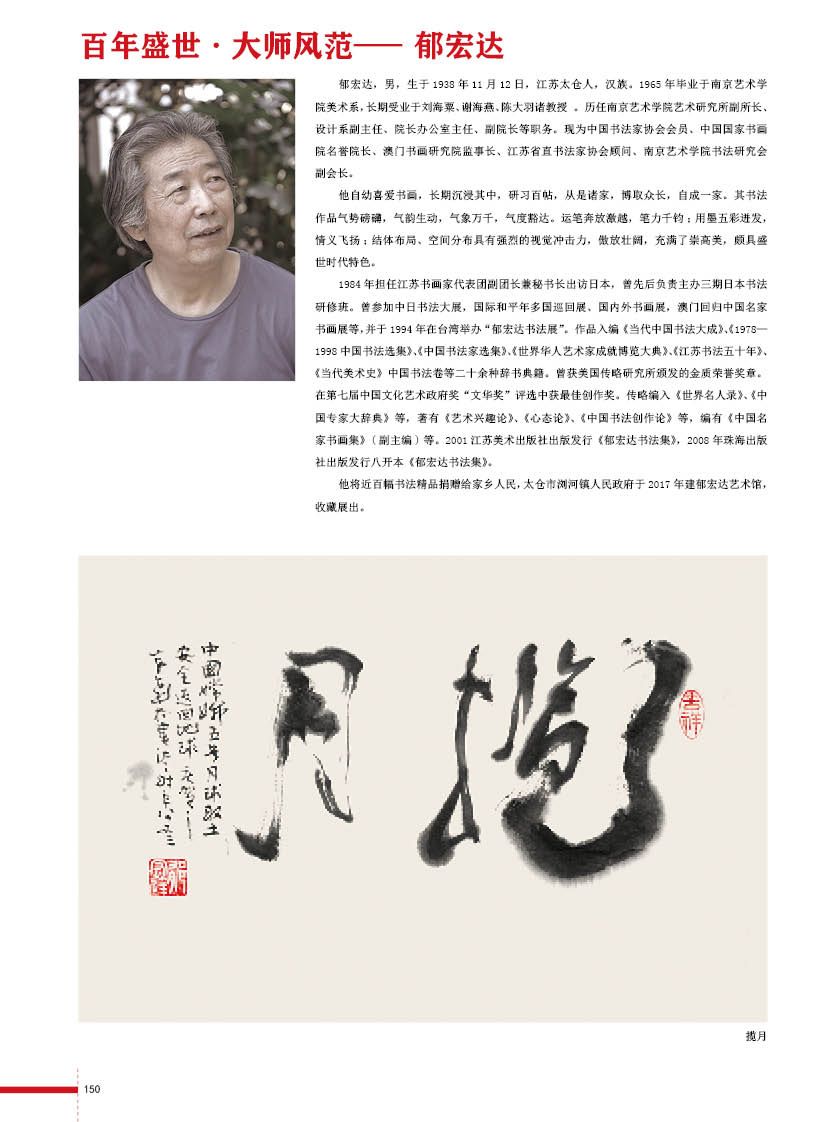 百年盛世·大师风范—— 郁宏达
郁宏达，男，生于 1938 年 11 月 12 日，江苏太仓人，汉族。1965 年毕业于南京艺术学
院美术系，长期受业于刘海粟、谢海燕、陈大羽诸教授 。历任南京艺术学院艺术研究所副所长、
设计系副主任、院长办公室主任、副院长等职务。现为中国书法家协会会员、中国国家书画
院名誉院长、澳门书画研究院监事长、江苏省直书法家协会顾问、南京艺术学院书法研究会
副会长。
他自幼喜爱书画，长期沉浸其中，研习百帖，从是诸家，博取众长，自成一家。其书法
作品气势磅礴，气韵生动，气象万千，气度豁达。运笔奔放激越，笔力千钧；用墨五彩迸发，
情义飞扬；结体布局、空间分布具有强烈的视觉冲击力，傲放壮阔，充满了崇高美，颇具盛
世时代特色。
1984 年担任江苏书画家代表团副团长兼秘书长出访日本，曾先后负责主办三期日本书法
研修班。曾参加中日书法大展，国际和平年多国巡回展、国内外书画展，澳门回归中国名家
书画展等，并于 1994 年在台湾举办“郁宏达书法展”。作品入编《当代中国书法大成》、《1978—
1998 中国书法选集》、《中国书法家选集》、《世界华人艺术家成就博览大典》、《江苏书法五十年》、
《当代美术史》中国书法卷等二十余种辞书典籍。曾获美国传略研究所颁发的金质荣誉奖章。
在第七届中国文化艺术政府奖“文华奖”评选中获最佳创作奖。传略编入《世界名人录》、《中
国专家大辞典》等，著有《艺术兴趣论》、《心态论》、《中国书法创作论》等，编有《中国名
家书画集》（副主编）等。2001 江苏美术出版社出版发行《郁宏达书法集》，2008 年珠海出版
社出版发行八开本《郁宏达书法集》。
他将近百幅书法精品捐赠给家乡人民，太仓市浏河镇人民政府于 2017 年建郁宏达艺术馆，
收藏展出。
揽月
吉祥
中國嫦娥五号月球取土
安全返回地球
揽月
150